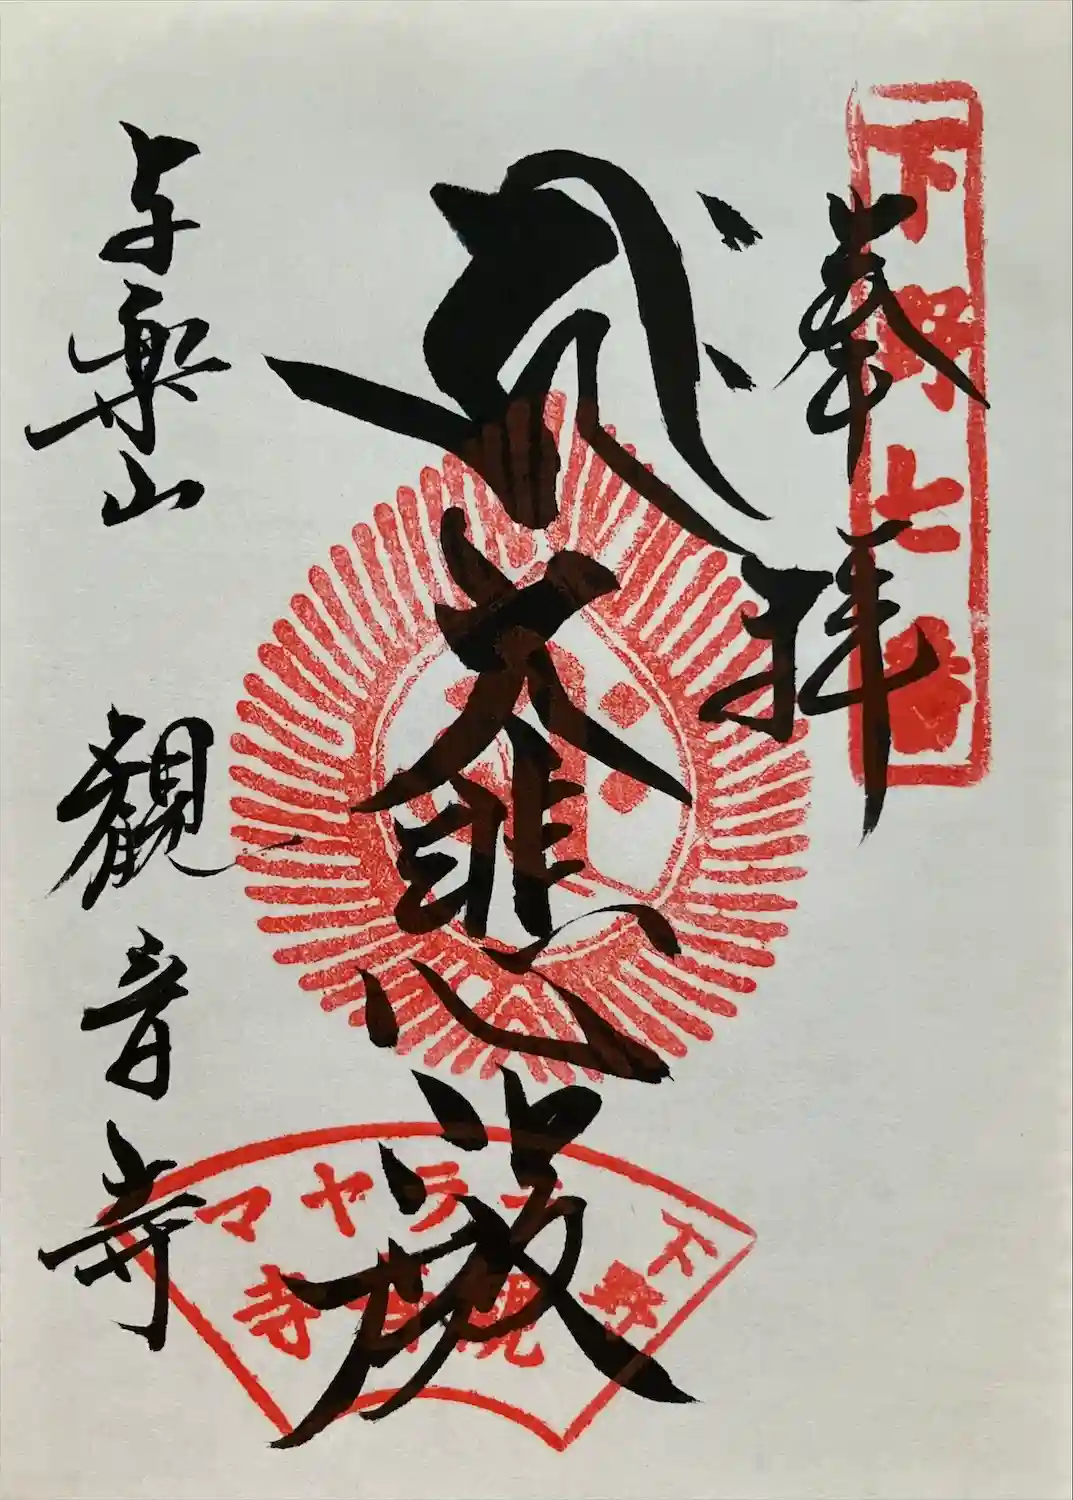 奉拝
下野七
大悲
下野
テラヤマ
観音寺
与楽山 観音寺